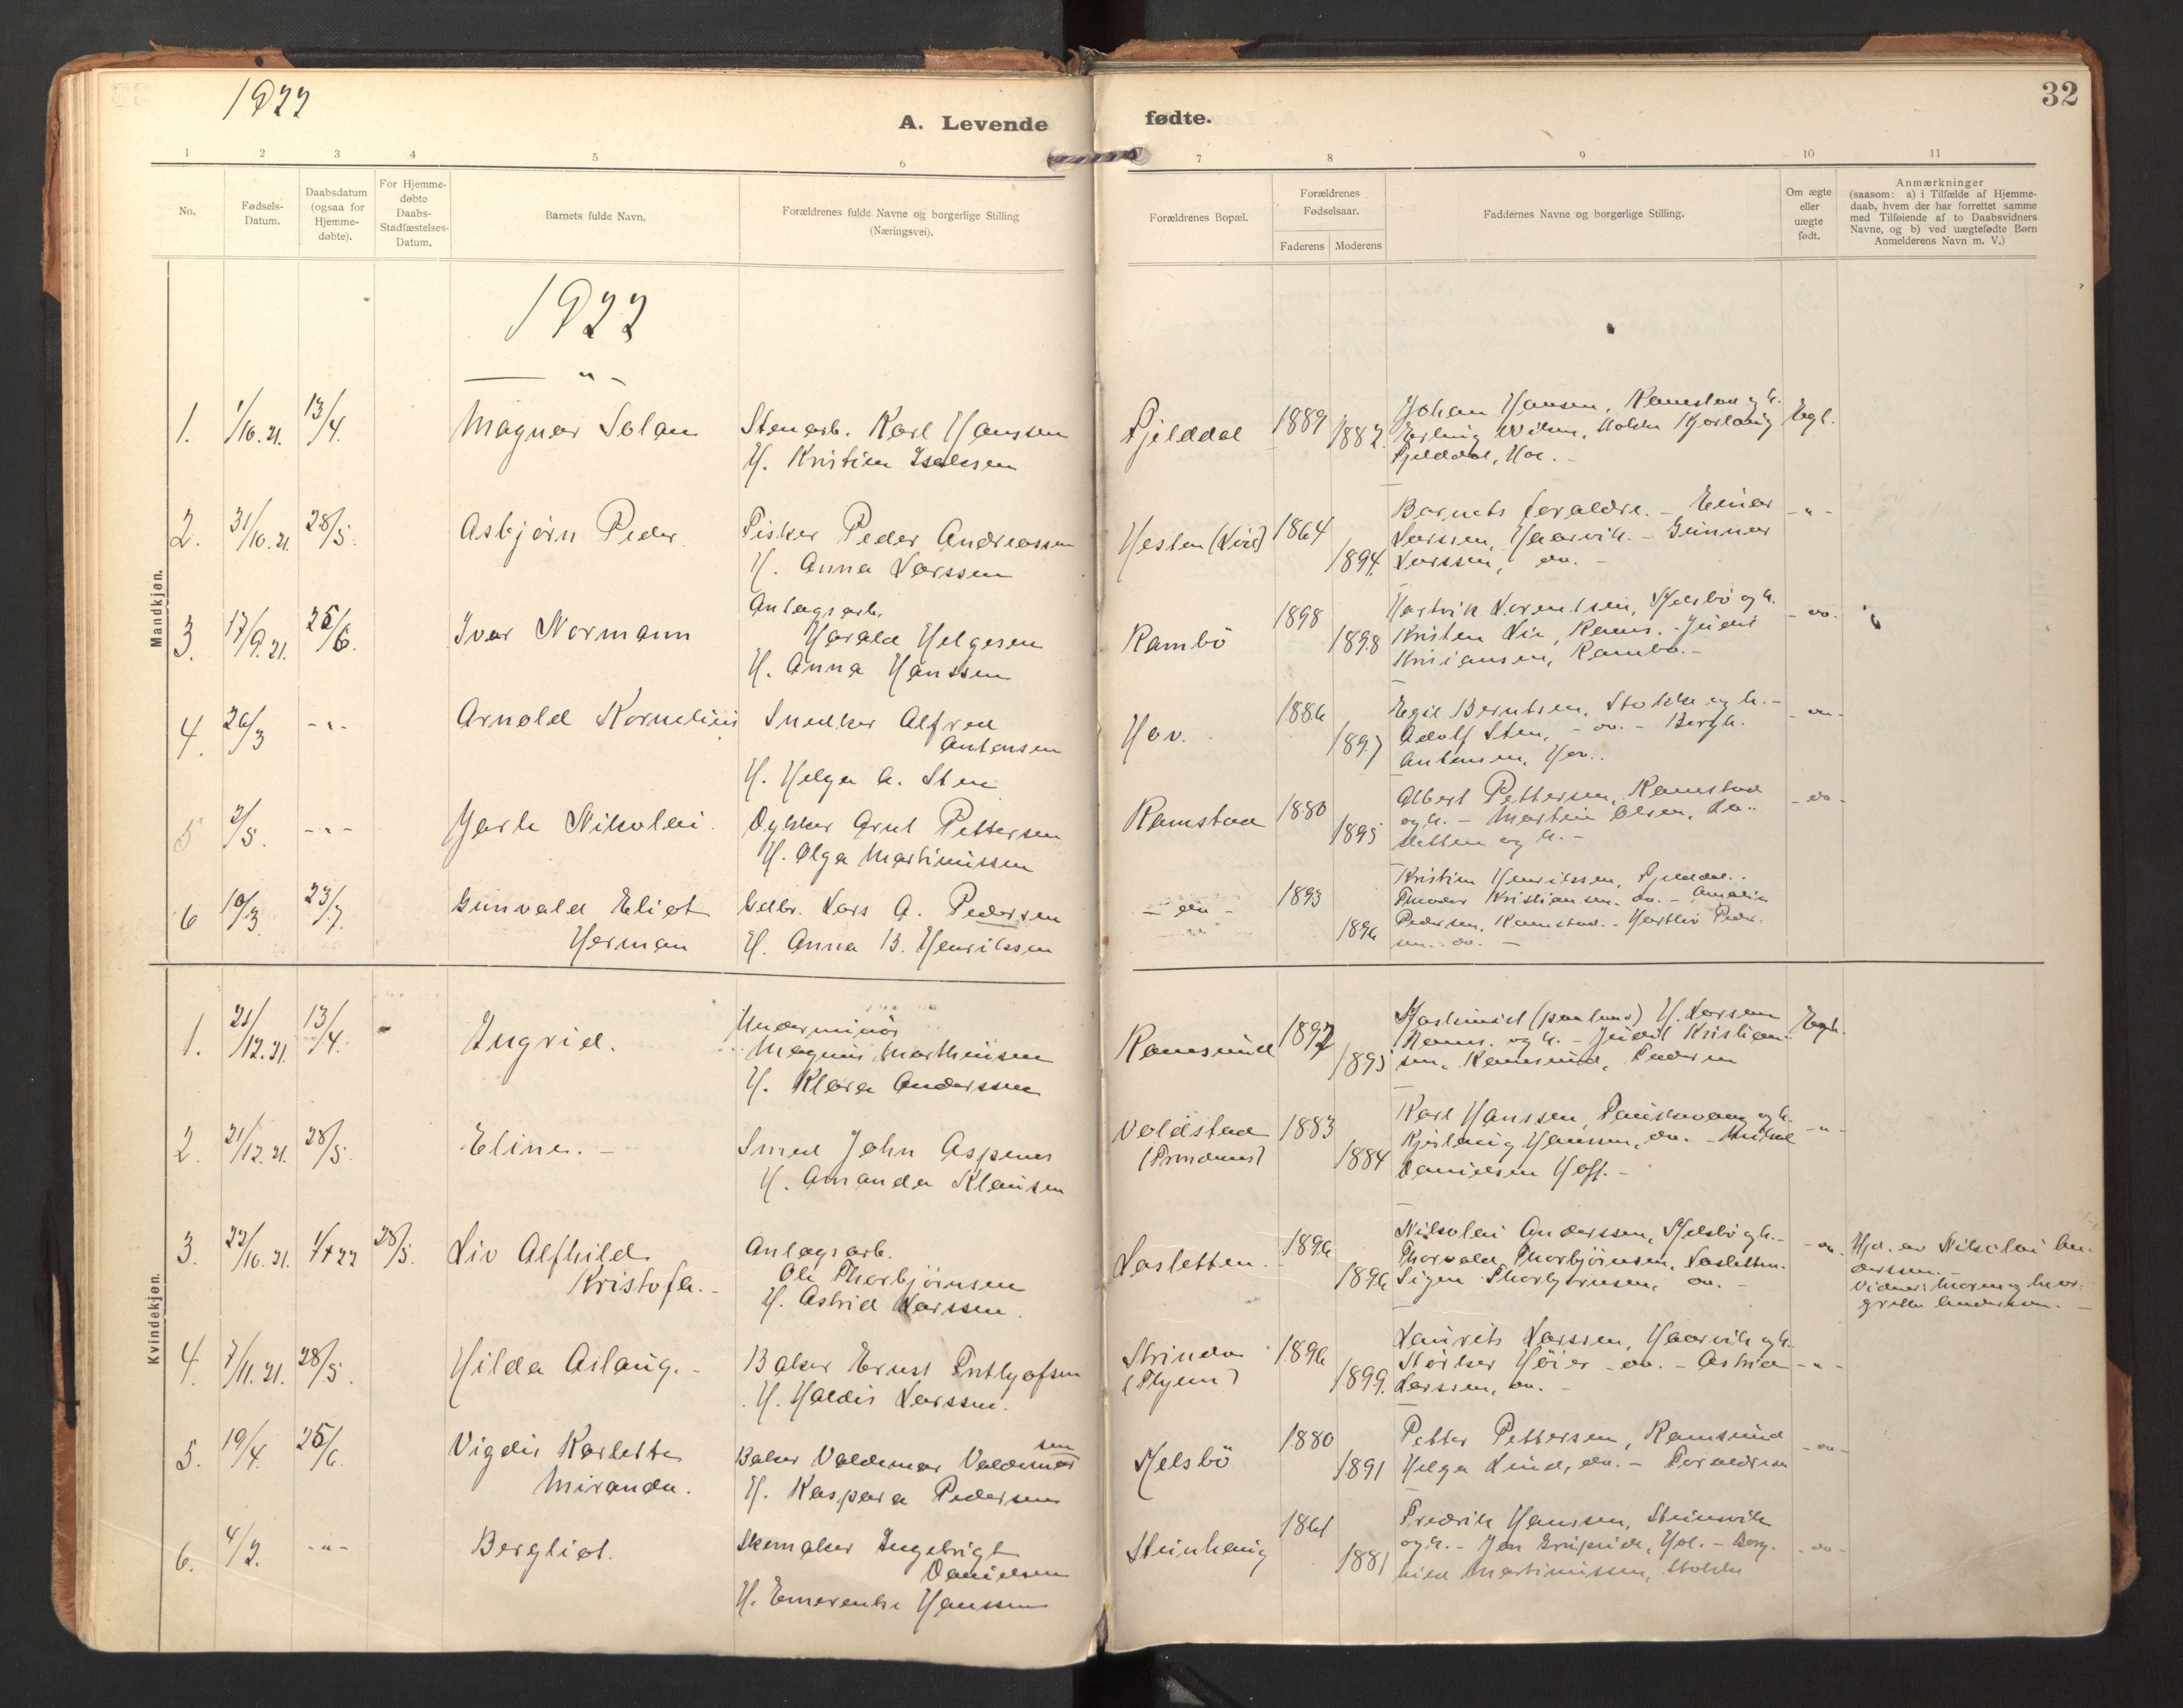 1922
A. Levende fødte.
32
1 2 3 4 5 6 7 8 9 10 11
No.
Fødsels-
Datum.
Daabsdatum
(ogsaa for
Hjemme-
døbte).
For Hjemme-
døbte
Daabs-
Stadfæstelses-
Datum.
Barnets fulde Navn.
Forældrenes fulde Navne og borgerlige Stilling
(Næringsvei).
Forældrenes Bopæl.
Forældrenes
Fødselsaar.
Faderens Moderens
Faddernes Navne og borgerlige Stilling.
Om ægte
eller
uægte
født.
Anmærkninger
(saasom: a) i Tilfælde af Hjemme-
daab, hvem der har forrettet samme
med Tilføiende af to Daabsvidners
Navne, og b) ved uægtefødte Børn
Anmelderens Navn m. V.)
1922
Mandkjøn.
1. 1/10.21. 13/4. Magnar Johan Stenarb. Karl Hanssen
H. Kristine
Fjelddal 1889 1882.
Johan Hansen, Ramstad og h.
Fjelddal, Hol. -
Egt.
2. 31/10.21. 28/5. Asbjørn Peder Fisker Peder Andreassen
H. Anna Larssen
1864 1894.
Barnets foraldre. - Einar
Larssen, Haarvik. - Gunnar
Larssen, do. -
- " -
3. 17/9.21. 25/6. Ivar Normann
Anlægsarb.
Harald Helgesen
H. Anna Hanssen
Rambö 1898 1898
Hartvik Lorentsen, Kjelsbö og h.
Kristen Lie, Rams. - Judit
Kristiansen, Rambö. -
- do. -
4. 26/3 - " - Arnold Kornelius Snedker Alfred
Antonsen
H. Helga A. Sten
Hov. 1886 1897
Egil Berntsen, Stokke og h. -
Adolf Sten, - do. - Bergh.
Antonsen, Hov.
- do -
5 2/5. - " - Jarle Nikolai. Dykker Arnt Pettersen
H. Olga Martinussen
Ramstad 1880 1895
Albert Pettersen, Ramstad
og h. - Martin Olsen, La-
sletten og h. -
- do -
6 10/3. 23/7. Gunvald Eliot
Herman
Gdbr. Lars A. Pedersen
H. Anna B. Henrikssen
- do - 1893 1896
Kristine Henrikssen, Fjelddal.
Teodor Kristiansen. do. - Amalie
Pedersen, Ramstad. - Hartliv Peder-
sen. do. -
Kvindekjøn.
1. 21/12.21. 13/4. Ingrid. Underminör
Magnus Marthinsen
H. Klara Anderssen
Ramsund 1892 1895
H. Larsen
Rams. og h. - Judit Kristian-
sen, Ramsund,
Egt.
2. 21/12.21. 28/5. Eline. - Smed John Aspenes
H. Amanda Klausen
Voldstad
(Trondenes)
1883 1884
Karl Hanssen, og h.
Hanssen, do. -
Danielsen Hoff. -
- " -
3. 22/10.21. 1/4 22 28/5. Liv Alfhild
Kristofa. -
Anlægsarb.
Ole Thorbjörnsen
H. Astrid Larssen.
Lasletten. 1896 1896
Nikolai Anderssen, Kjelsbö og h. -
Thorvald Thorbjörnsen, Lasletten.
Signe Thorbjörnsen, do. -
- do. Hjd. av Nikolai An-
derssen. -
Vidner: Maren og Mar-
grethe Anderssen. -
4. 7/11.21. 28/5. Hilda Aslaug. - Baker Ernst Fritljofsen
H. Haldis Larssen.
Strinda
1896 1899.
Laurits Larssen, Haarvik og h.
Störker Höier - do. - Astrid
Larssen, do. -
- " -
5. 19/4. 25/6. Vigdis Karlotte
Miranda.
Baker Valdemar Valdemar
sen
H. Kaspara Pedersen
Kjelsbö 1880 1891
Petter Pettersen, Ramsund
Helga Lind, do. - Foraldrene
- do -
6. 4/2. - " - Bergliot. Skomaker Ingebrigt
Danielsen
H. Emerentse Hanssen
Steinhaug 1861 1881
Fredrik Hanssen, Steinsvik
og h. - Hol. - Borg-
hild Martinussen, Stokke
- do -